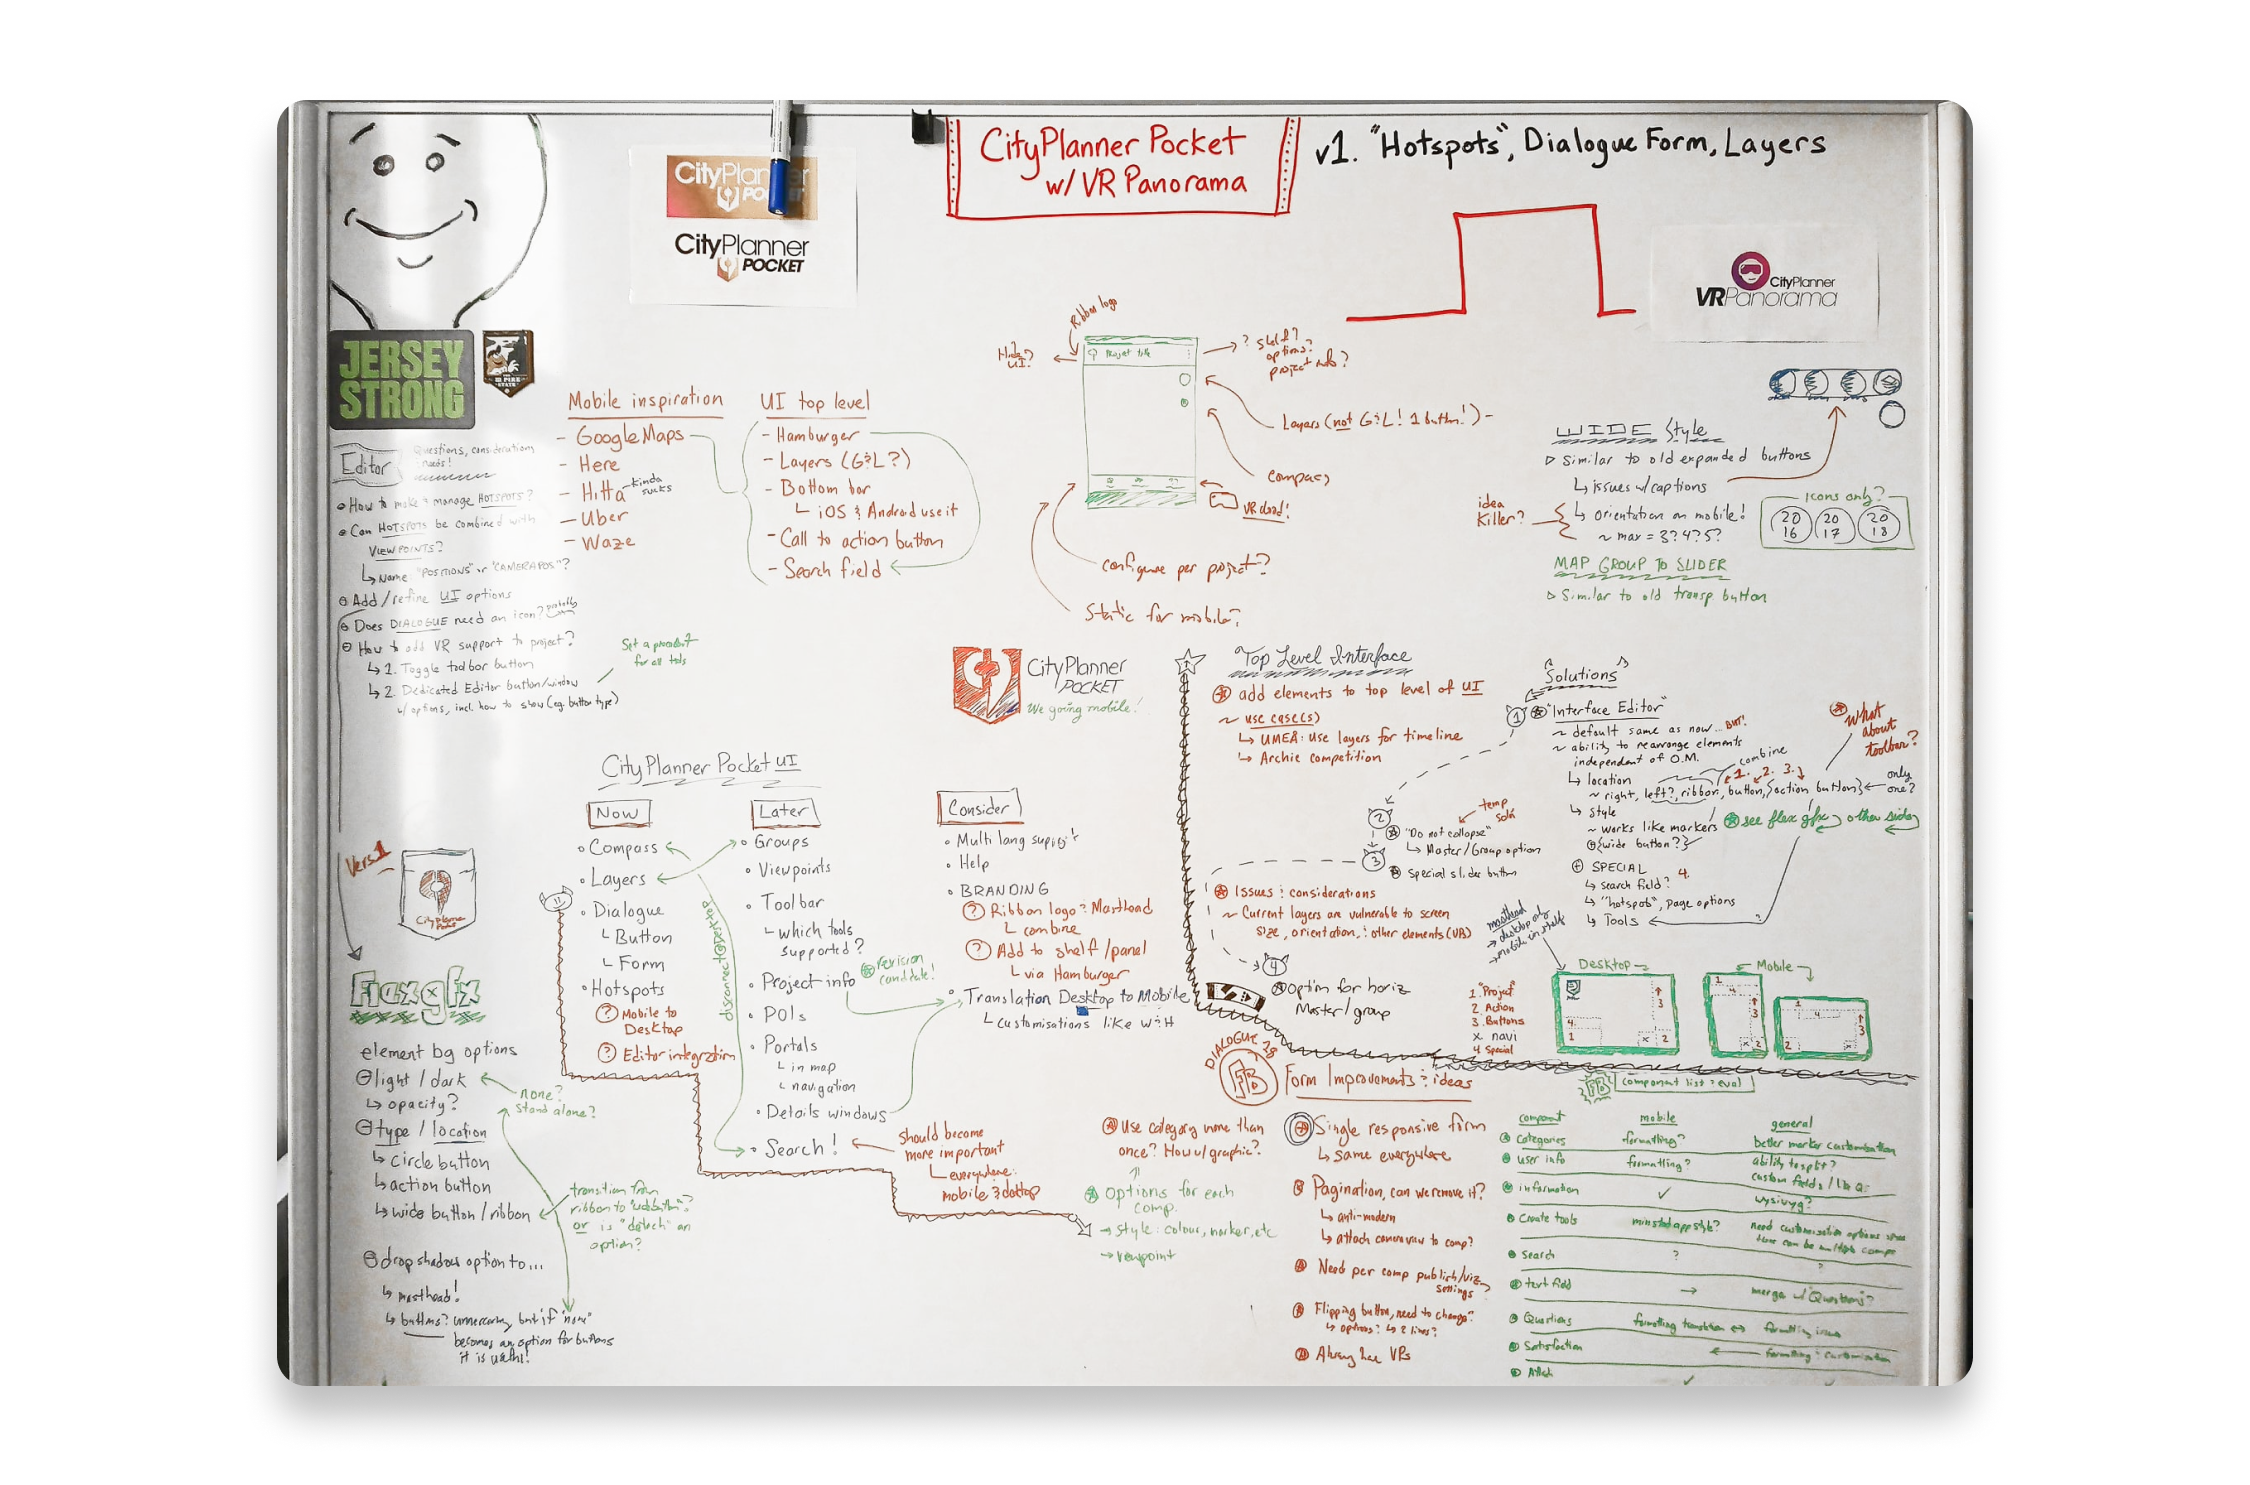 CityPlanner Pocket
w/ VR Panorama
v1. "Hotspots", Dialogue Form, Layers
CityPlanner
POCKET
CityPlanner
VRPanorama
JERSEY
STRONG
Editor
Questions, considerations
needs!
How to make & manage HOTSPOTS?
Can HOTSPOTS be combined with
VIEWPOINTS?
Name: "POSITIONS" or "CAMERA POS"?
Add/refine UI options
Does DIALOGUE need an icon? probably
How to add VR support to project?
1. Toggle toolbar button
2. Dedicated Editor button/window
w/ options, incl. how to show (eg. button type)
Set a precedent
for all tools
Mobile inspiration
- Google Maps
- Here
- Hitta kinda sucks
- Uber
- Waze
UI top level
- Hamburger
- Layers (G&L?)
- Bottom bar
iOS & Android use it
- Call to action button
- Search field
Ribbon logo
Hide
UI?
Project title
? shelf?
options?
project info?
Layers (not G&L! 1 button!) -
compass
VR ready!
configure per project?
Static for mobile?
WIDE Style
Similar to old expanded buttons
issues w/captions
orientation on mobile!
~ max = 3? 4? 5?
idea
killer?
Icons only?
20 16
20 17
20 18
MAP GROUP TO SLIDER
Similar to old transp. button
CityPlanner
POCKET
We going mobile!
Top Level Interface
add elements to top level of UI
~ use case(s)
UMEÅ: use layers for timeline
Archie competition
Solutions
1 "Interface Editor"
~ default same as now... BUT!
~ ability to rearrange elements
independent of O.M.
combine
location
1. 2. 3.
~ right, left?, ribbon, button, {action button} only one?
style
~ works like markers
{wide button??}
see flex gfx other side
What
about
toolbar?
SPECIAL
search field? 4.
"hotspot", page options
Tools
2
"Do not collapse"
Master/Group option
temp
soln
3
Special slider button
Issues & considerations
~ Current layers are vulnerable to screen
size, orientation, & other elements (VB)
4
Optim for horiz
Master/group
masthead
desktop only
mobile in shelf
1. "Project"
2. Action
3. Buttons
x navi
4. Special
Desktop
Mobile
CityPlanner Pocket UI
Now
• Compass
• Layers
• Dialogue
Button
Form
• Hotspots
? Mobile to
Desktop
? Editor integration
disconnect@Desktop
Later
• Groups
• Viewpoints
• Toolbar
which tools
supported?
• Project info
revision
candidate!
• POIs
• Portals
in map
navigation
• Details windows
• Search!
should become
more important
everywhere:
mobile & dsktop
Consider
• Multi lang support
• Help
• BRANDING
? Ribbon logo & Masthead
combine
? Add to shelf/panel
via Hamburger
• Translation Desktop to Mobile
customisations like W&H
Vers 1
City Planner
Pocket
Flexgfx
element bg options
light / dark
opacity?
none?
stand alone?
type / location
circle button
action button
wide button / ribbon
transition from
ribbon to "widebutton"?
or is "detach" an
option?
drop shadow option to...
masthead!
buttons? unnecessary but if "none"
becomes an option for buttons
it is useful!
DIALOGUE
Form Improvements & ideas
Use category more than
once? How w/graphic?
Options for each
comp.
style: colour, marker, etc
viewpoint
Single responsive form
same everywhere
Pagination, can we remove it?
anti-modern
attach camera view to comp?
Need per comp publish/viz
settings
Flipping button, need to change?
options? 2 lines?
Always have VPs
component list & eval
component mobile general
Categories formatting? better marker customisation
user info formatting? ability to split?
custom fields / like Qs
information ✓ wysiwyg?
Create tools need customisation options
Search ? ?
text field → merge w/ Questions?
Questions formatting transition ↔ formatting issues
Satisfaction ← formatting & customisation
Attach ✓